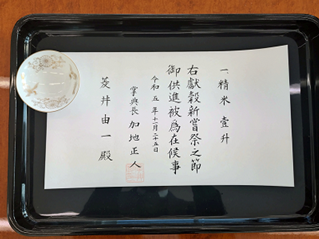 一、精米 壹升
右献穀新嘗祭之節
御供進被為在候事
令和五年十一月二十五日
掌典長 加地正人
菱井由一殿